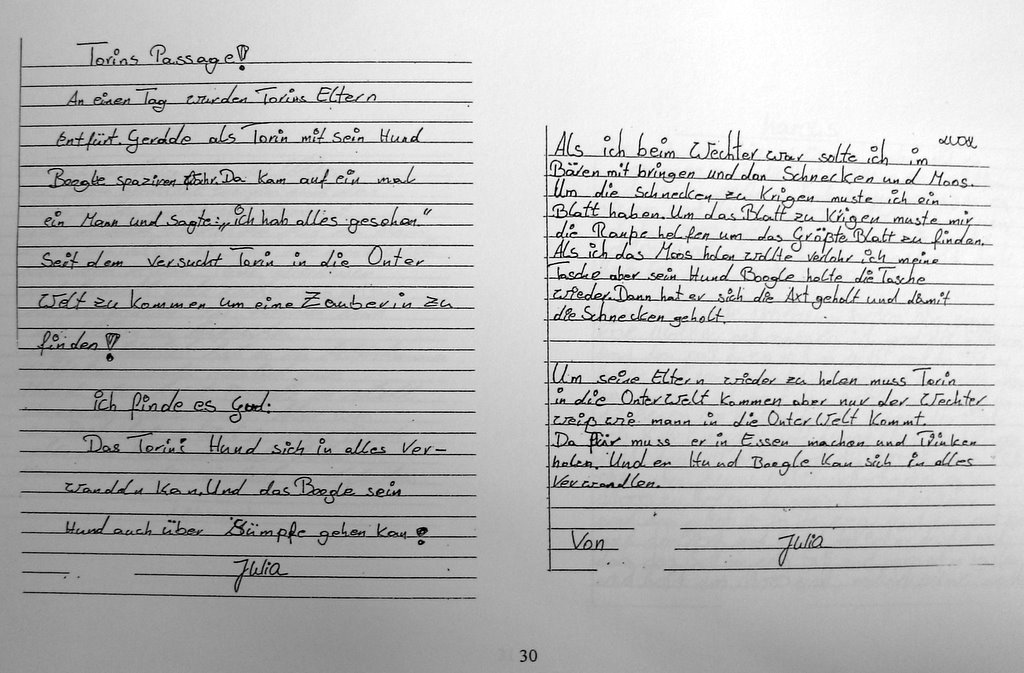 Torins Passage!
An einen Tag wurden Torins Eltern
Entfürt. Geradde als Torin mit sein Hund
Boogle spaziren Da kam auf ein mal
ein Mann und sagte: „ich hab alles gesehen"
Seit dem versucht Torin in die Onter
Welt zu kommen um eine Zauberin zu
finden!
ich finde es Gud:
Das Torins Hund sich in alles Ver-
wanddn kan. Und das Boogle sein
Hund auch über Sümpfe gehen kan!
Julia
Als ich beim Wechter war solte ich im
Bären mit bringen und dan Schnecken und Moos.
Um die Schnecken zu krigen muste ich ein
Blatt haben. Um das Blatt zu krigen muste mir
die Raupe helfen um das Größte Blatt zu finden.
Als ich das Moos holen wollte verlohr ich meine
Tasche aber sein Hund Boogle holte die Tasche
wieder. Dann hat er sich die Axt geholt und damit
die Schnecken geholt.
Um seine Eltern wieder zu holen muss Torin
in die Onter Welt kommen aber nur der Wechter
weiß wie mann in die Onter Welt kommt.
Da für muss er in Essen machen und Trinken
holen. Und en Hund Boogle kan sich in alles
Verwandlen.
Von Julia
30